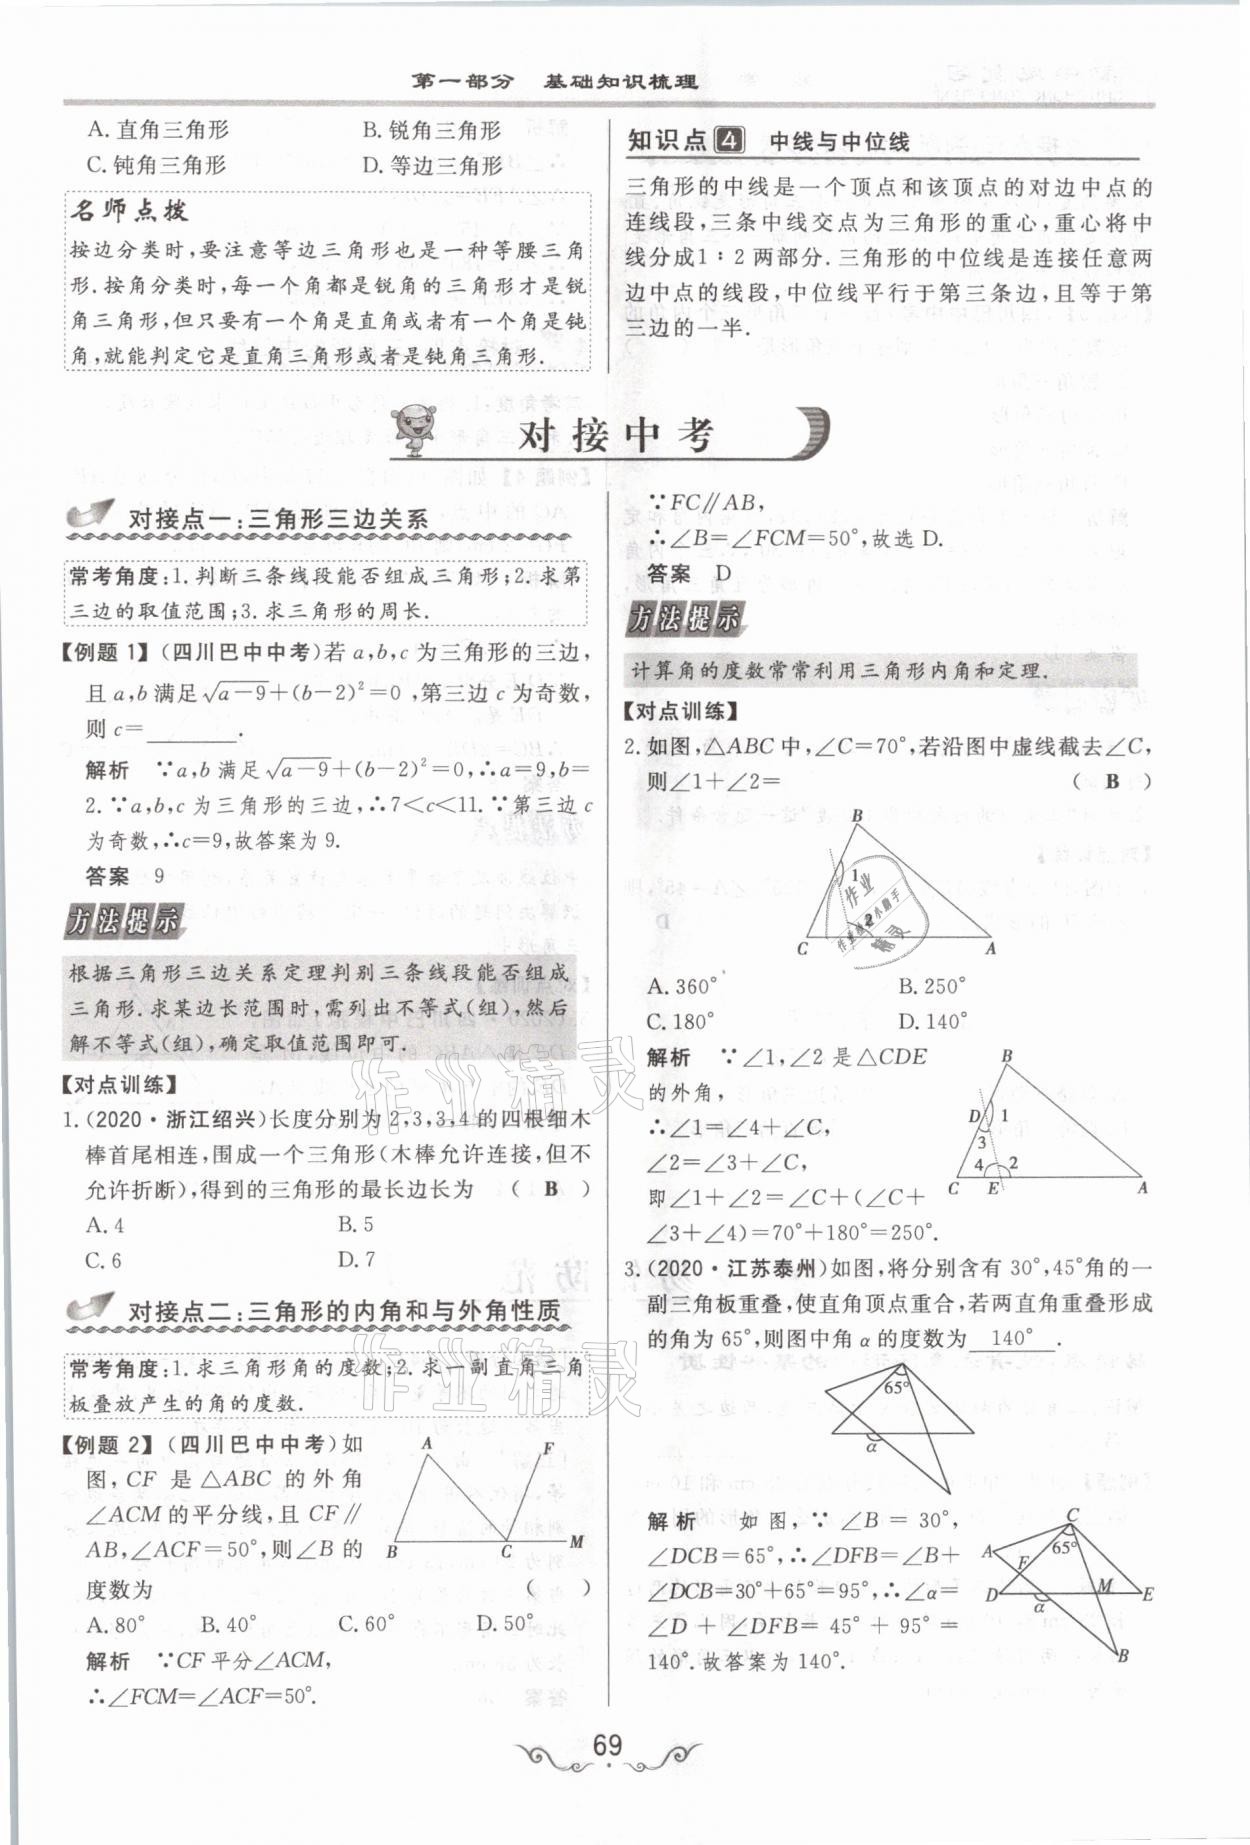 第一部分　基础知识梳理
A.直角三角形　B.锐角三角形
C.钝角三角形　D.等边三角形
名师点拨
按边分类时,要注意等边三角形也是一种等腰三角
形.按角分类时,每一个角都是锐角的三角形才是锐
角三角形,但只要有一个角是直角或者有一个角是钝
角,就能判定它是直角三角形或者是钝角三角形.
知识点4　中线与中位线
三角形的中线是一个顶点和该顶点的对边中点的
连线段,三条中线交点为三角形的重心,重心将中
线分成1∶2两部分.三角形的中位线是连接任意两
边中点的线段,中位线平行于第三条边,且等于第
三边的一半.
对接中考
对接点一:三角形三边关系
常考角度:1.判断三条线段能否组成三角形;2.求第
三边的取值范围;3.求三角形的周长.
【例题1】(四川巴中中考)若a,b,c为三角形的三边,
且a,b满足√(a-9)+(b-2)²=0,第三边c为奇数,
则c=______.
解析　∵a,b满足√(a-9)+(b-2)²=0,∴a=9,b=
2.∵a,b,c为三角形的三边,∴7<c<11.∵第三边c
为奇数,∴c=9,故答案为9.
答案　9
方法提示
根据三角形三边关系定理判别三条线段能否组成
三角形.求某边长范围时,需列出不等式(组),然后
解不等式(组),确定取值范围即可.
【对点训练】
1.(2020·浙江绍兴)长度分别为2,3,3,4的四根细木
棒首尾相连,围成一个三角形(木棒允许连接,但不
允许折断),得到的三角形的最长边长为　( B )
A.4　B.5
C.6　D.7
对接点二:三角形的内角和与外角性质
常考角度:1.求三角形角的度数;2.求一副直角三角
板叠放产生的角的度数.
【例题2】(四川巴中中考)如
图,CF是△ABC的外角
∠ACM的平分线,且CF∥
AB,∠ACF=50°,则∠B的
度数为　(　)
A F B C M
A.80°　B.40°　C.60°　D.50°
解析　∵CF平分∠ACM,
∴∠FCM=∠ACF=50°.
∵FC∥AB,
∴∠B=∠FCM=50°,故选D.
答案　D
方法提示
计算角的度数常常利用三角形内角和定理.
【对点训练】
2.如图,△ABC中,∠C=70°,若沿图中虚线截去∠C,
则∠1+∠2=　( B )
B 1 2 C A
A.360°　B.250°
C.180°　D.140°
解析　∵∠1,∠2是△CDE
的外角,
∴∠1=∠4+∠C,
∠2=∠3+∠C,
即∠1+∠2=∠C+(∠C+
∠3+∠4)=70°+180°=250°.
B D 1 3 4 2 C E A
3.(2020·江苏泰州)如图,将分别含有30°,45°角的一
副三角板重叠,使直角顶点重合,若两直角重叠形成
的角为65°,则图中角α的度数为 140° .
65° α
解析　如图,∵∠B=30°,
∠DCB=65°,∴∠DFB=∠B+
∠DCB=30°+65°=95°,∴∠α=
∠D+∠DFB=45°+95°=
140°.故答案为140°.
C A F 65° D α M E B
作业精灵
作业精灵
69